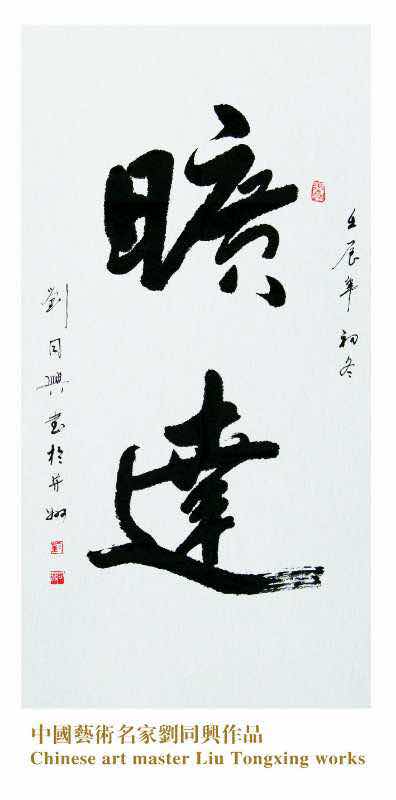 曠達
壬辰年初冬
劉同興書於并州
中國藝術名家劉同興作品
Chinese art master Liu Tongxing works